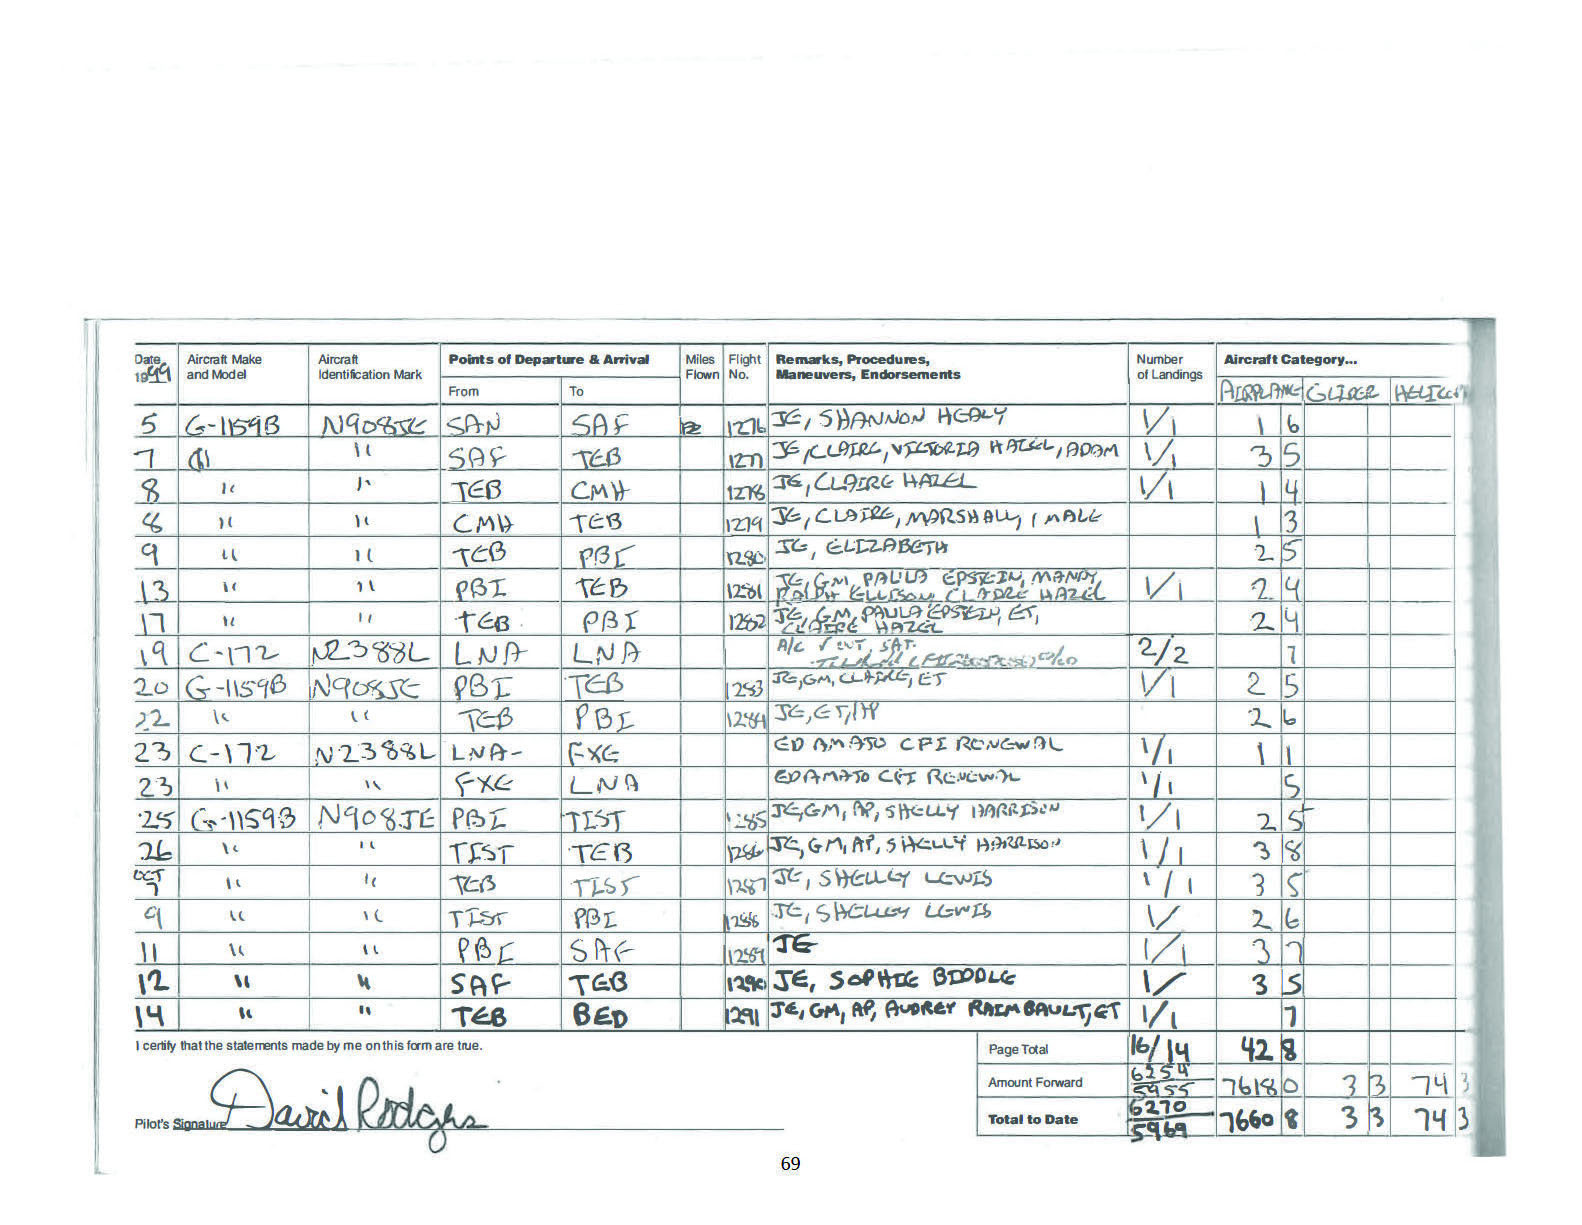 Date 1999 Aircraft Make and Model Aircraft Identification Mark Points of Departure & Arrival Miles Flown Flight No. Remarks, Procedures, Maneuvers, Endorsements Number of Landings Aircraft Category...
From To AIRPLANE GLIDER
5 G-1159B N908JE SAN SAF 1276 JE, SHANNON HEALY 1/1 1 6
7 " SAF TEB 1277 JE, CLAIRE, VICTORIA HAZEL, ADAM 1/1 3 5
8 " " TEB CMH 1278 JE, CLAIRE HAZEL 1/1 1 4
8 " " CMH TEB 1279 JE, CLAIRE, MARSHALL, 1 MALE 1 3
9 " " TEB PBI 1280 JE, ELIZABETH 2 5
13 " " PBI TEB 1281 JE, GM, PAULA EPSTEIN, MANDY, 1/1 2 4
RALPH ELLISON, CLAIRE HAZEL
17 " " TEB PBI 1282 JE, GM, PAULA EPSTEIN, ET, 2 4
CLAIRE HAZEL
19 C-172 N2388L LNA LNA A/C SAT. 2/2 7
20 G-1159B N908JE PBI TEB 1283 JE, GM, CLAIRE, ET 1/1 2 5
22 " " TEB PBI 1284 JE, ET, 2 6
23 C-172 N2388L LNA- FXE ED AMATO CFI RENEWAL 1/1 1 1
23 " " FXE LNA ED AMATO CFI RENEWAL 1/1 5
25 G-1159B N908JE PBI TIST 1285 JE, GM, AP, SHELLY HARRISON 1/1 2 5
26 " " TIST TEB 1286 JE, GM, AP, SHELLY HARRISON 1/1 3 8
OCT
7 " " TEB TIST 1287 JE, SHELLEY LEWIS 1/1 3 5
9 " " TIST PBI 1288 JE, SHELLEY LEWIS 1/ 2 6
11 " " PBI SAF 1289 JE 1/1 3 7
12 " " SAF TEB 1290 JE, SOPHIE BIDDLE 1/ 3 5
14 " " TEB BED 1291 JE, GM, AP, AUDREY RAIMBAULT, ET 1/1 7
I certify that the statements made by me on this form are true. Page Total 16/14 42 8
Amount Forward 6254 5955 7618 0 3 3 74 3
Pilot's Signature David Rodgers Total to Date 6270 5969 7660 8 3 3 74 3
69